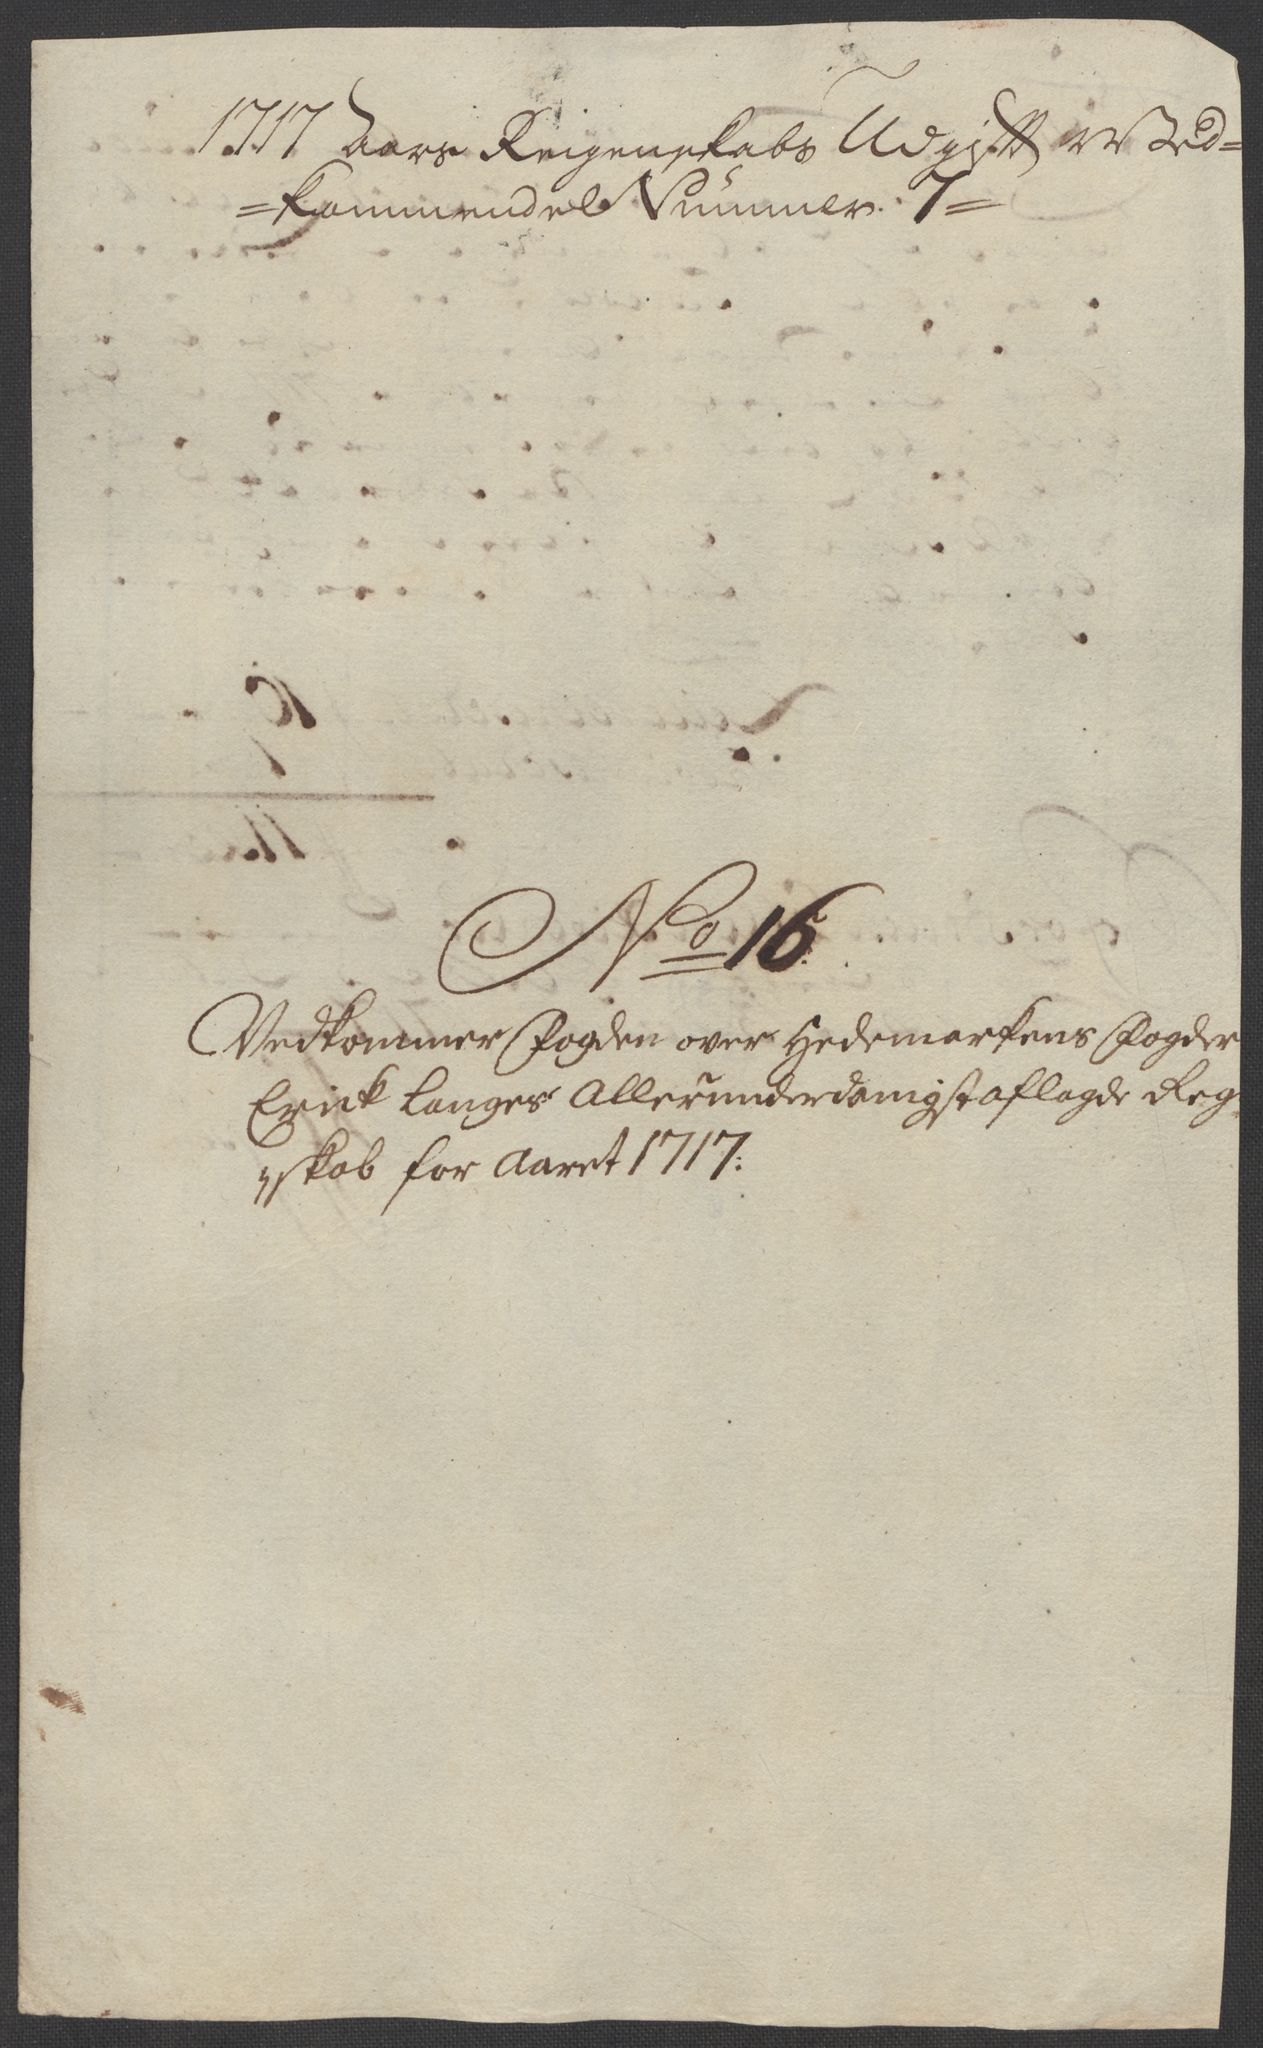 1717 Aars Reigenskabs Udgifft Ved=
=kommendel Nummer. 7=
No 16
Vedkommer Fogden over Hedemarkens Fogder
Erick Langes Allerunderdanigst aflagde Reg
skab for Aaret 1717: